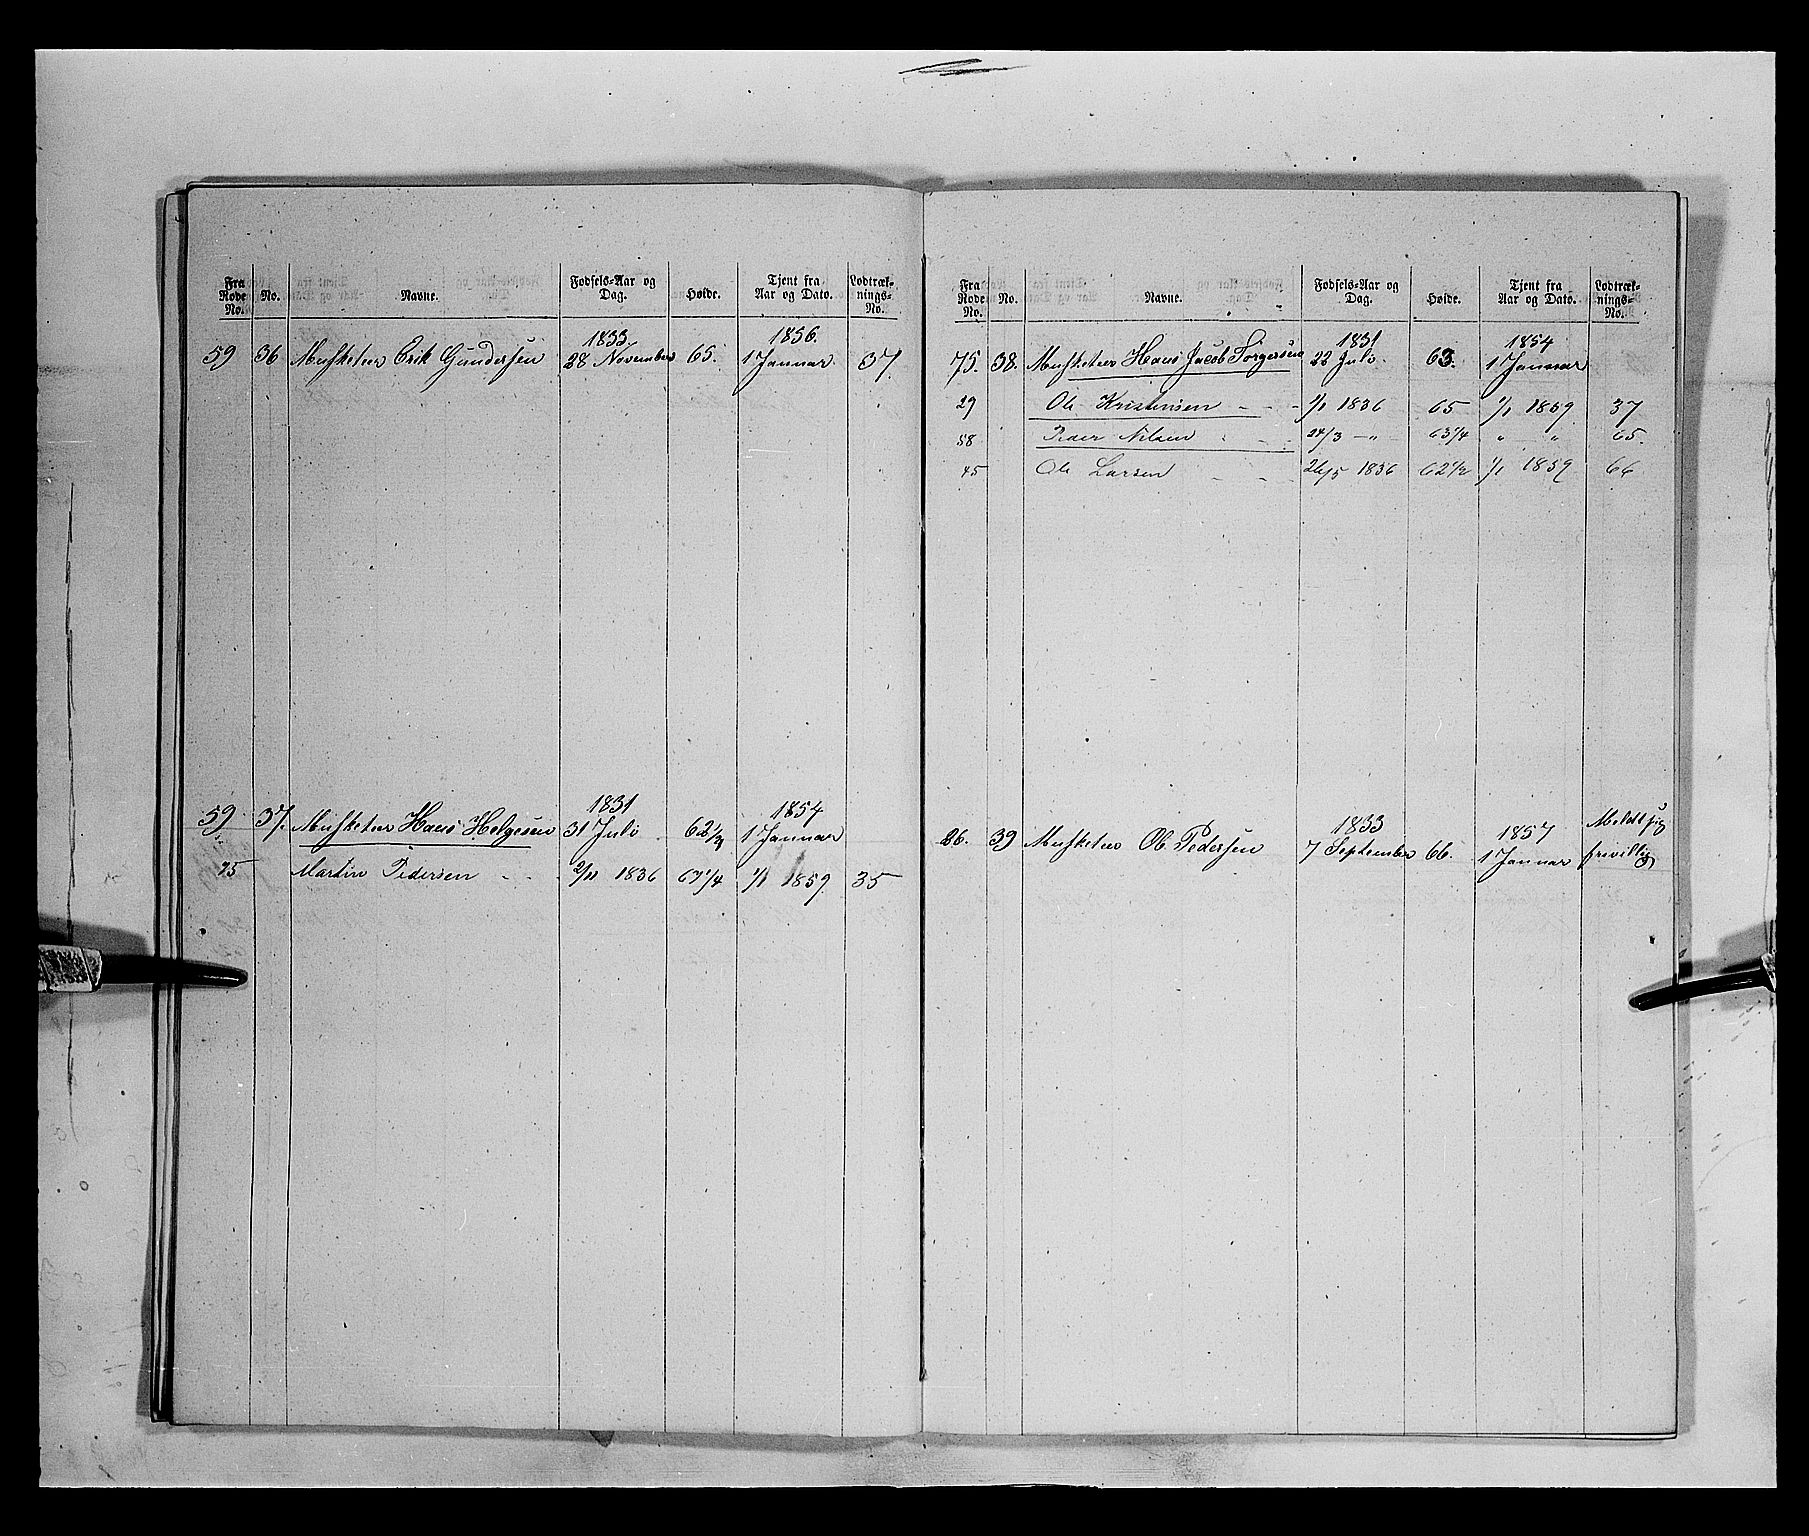 Fra Rode No. No. Navne. Fødsels-Aar og Dag. Høide. Tjent fra Aar og Dato. Lodtræk-nings-No.
1833 1856.
59 36 Musketeer Erik Gundersen 28 November 65. 1 Januar 37.
1831 1854
59 37. Musketeer Hans Helgesen 31 Juli 62 1 Januar
75 Martin Pedersen - - 2/11 1836 67 1/4 1/1 1859 35
Fra Rode No. No. Navne. Fødsels-Aar og Dag. Høide. Tjent fra Aar og Dato. Lodtræk-nings-No.
1831 1854
75. 38. Musketeer Hans Jacob Torgersen 22 Juli 63. 1 Januar
29 Ole Kristensen - - - 1/1 1836 65 1/1 1859 37
58 Peder Nilsen - - 24/3 - " - 63 1/4 " " 65.
45 Ole Larsen - - - 26/5 1836 62 1/2 1/1 1859 66
1833 1857 Meldt sig
26. 39 Musketeer Ole Pedersen 7 September 66. 1 Januar frivillig